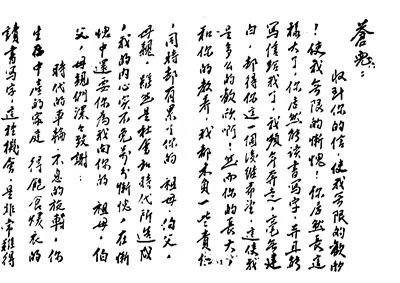 收到你的信，使我無限的歡欣
！使我無限的慚愧！你居然長這
樣大了，你居然能讀書寫字，并且能
寫信給我了，我 毫無建
白，却得你這一個後繼希望，這使我
是多么的歡欣啊！然而你的長大
和你的教養，我都未負一些責任
，同時却有累了你的祖母，伯父，
母親，雖然是社會和時代所造成
，我的內心实不免万分慚愧，在慚
愧中還要你為我向你的祖母，伯
父，母親們深々致謝：
時代的車輪不息的旋轉，你
生在中產的家庭 得飽食煖衣的
讀書寫字，這種機會，是非常難得